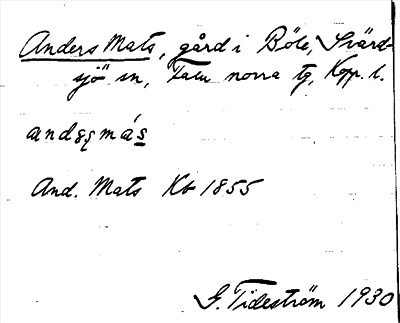 Anders Mats, gård i Böle, Svärd-
sjö sn, Falu norra tg, Kopp. l.
andẹsmá̱s
And. Mats Kb 1855
G. Tideström 1930